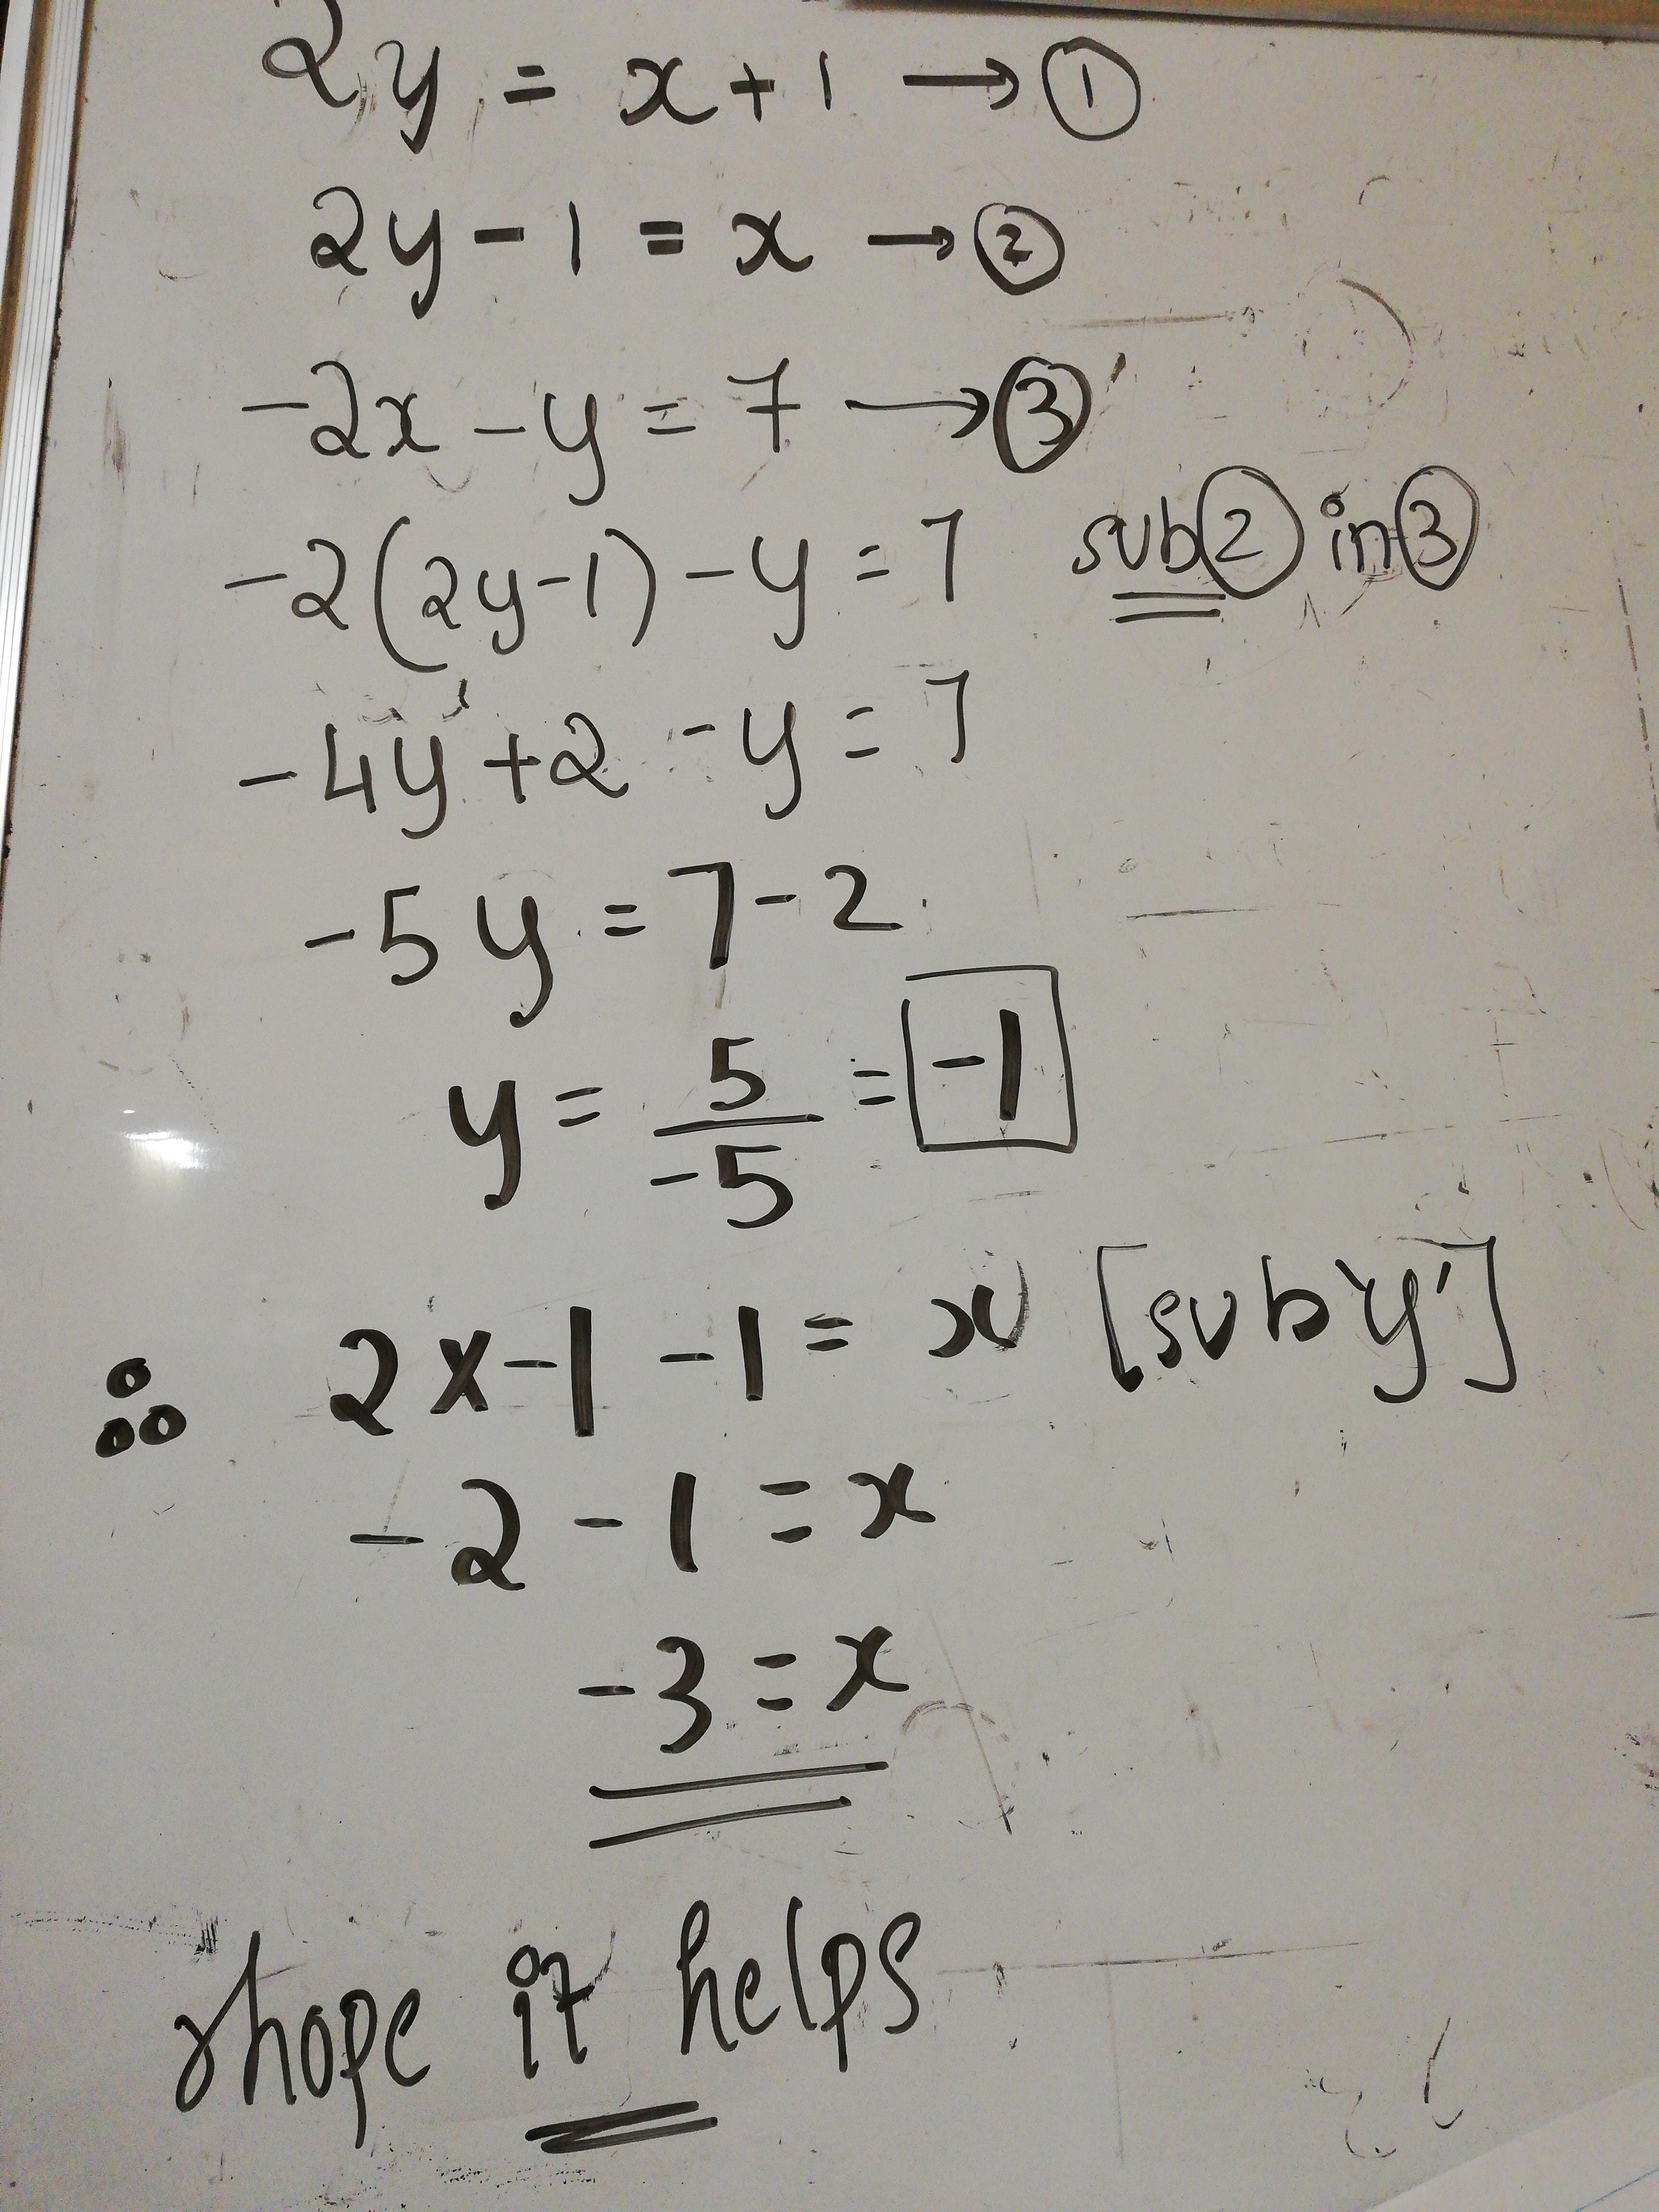 2y = x + 1 → ①
2y - 1 = x → ②
-2x - y = 7 → ③
-2(2y-1) - y = 7 sub ② in ③
-4y + 2 - y = 7
-5y = 7 - 2
y = 5/-5 = -1
∴ 2x-1 -1 = x [sub 'y']
-2 - 1 = x
-3 = x
hope it helps